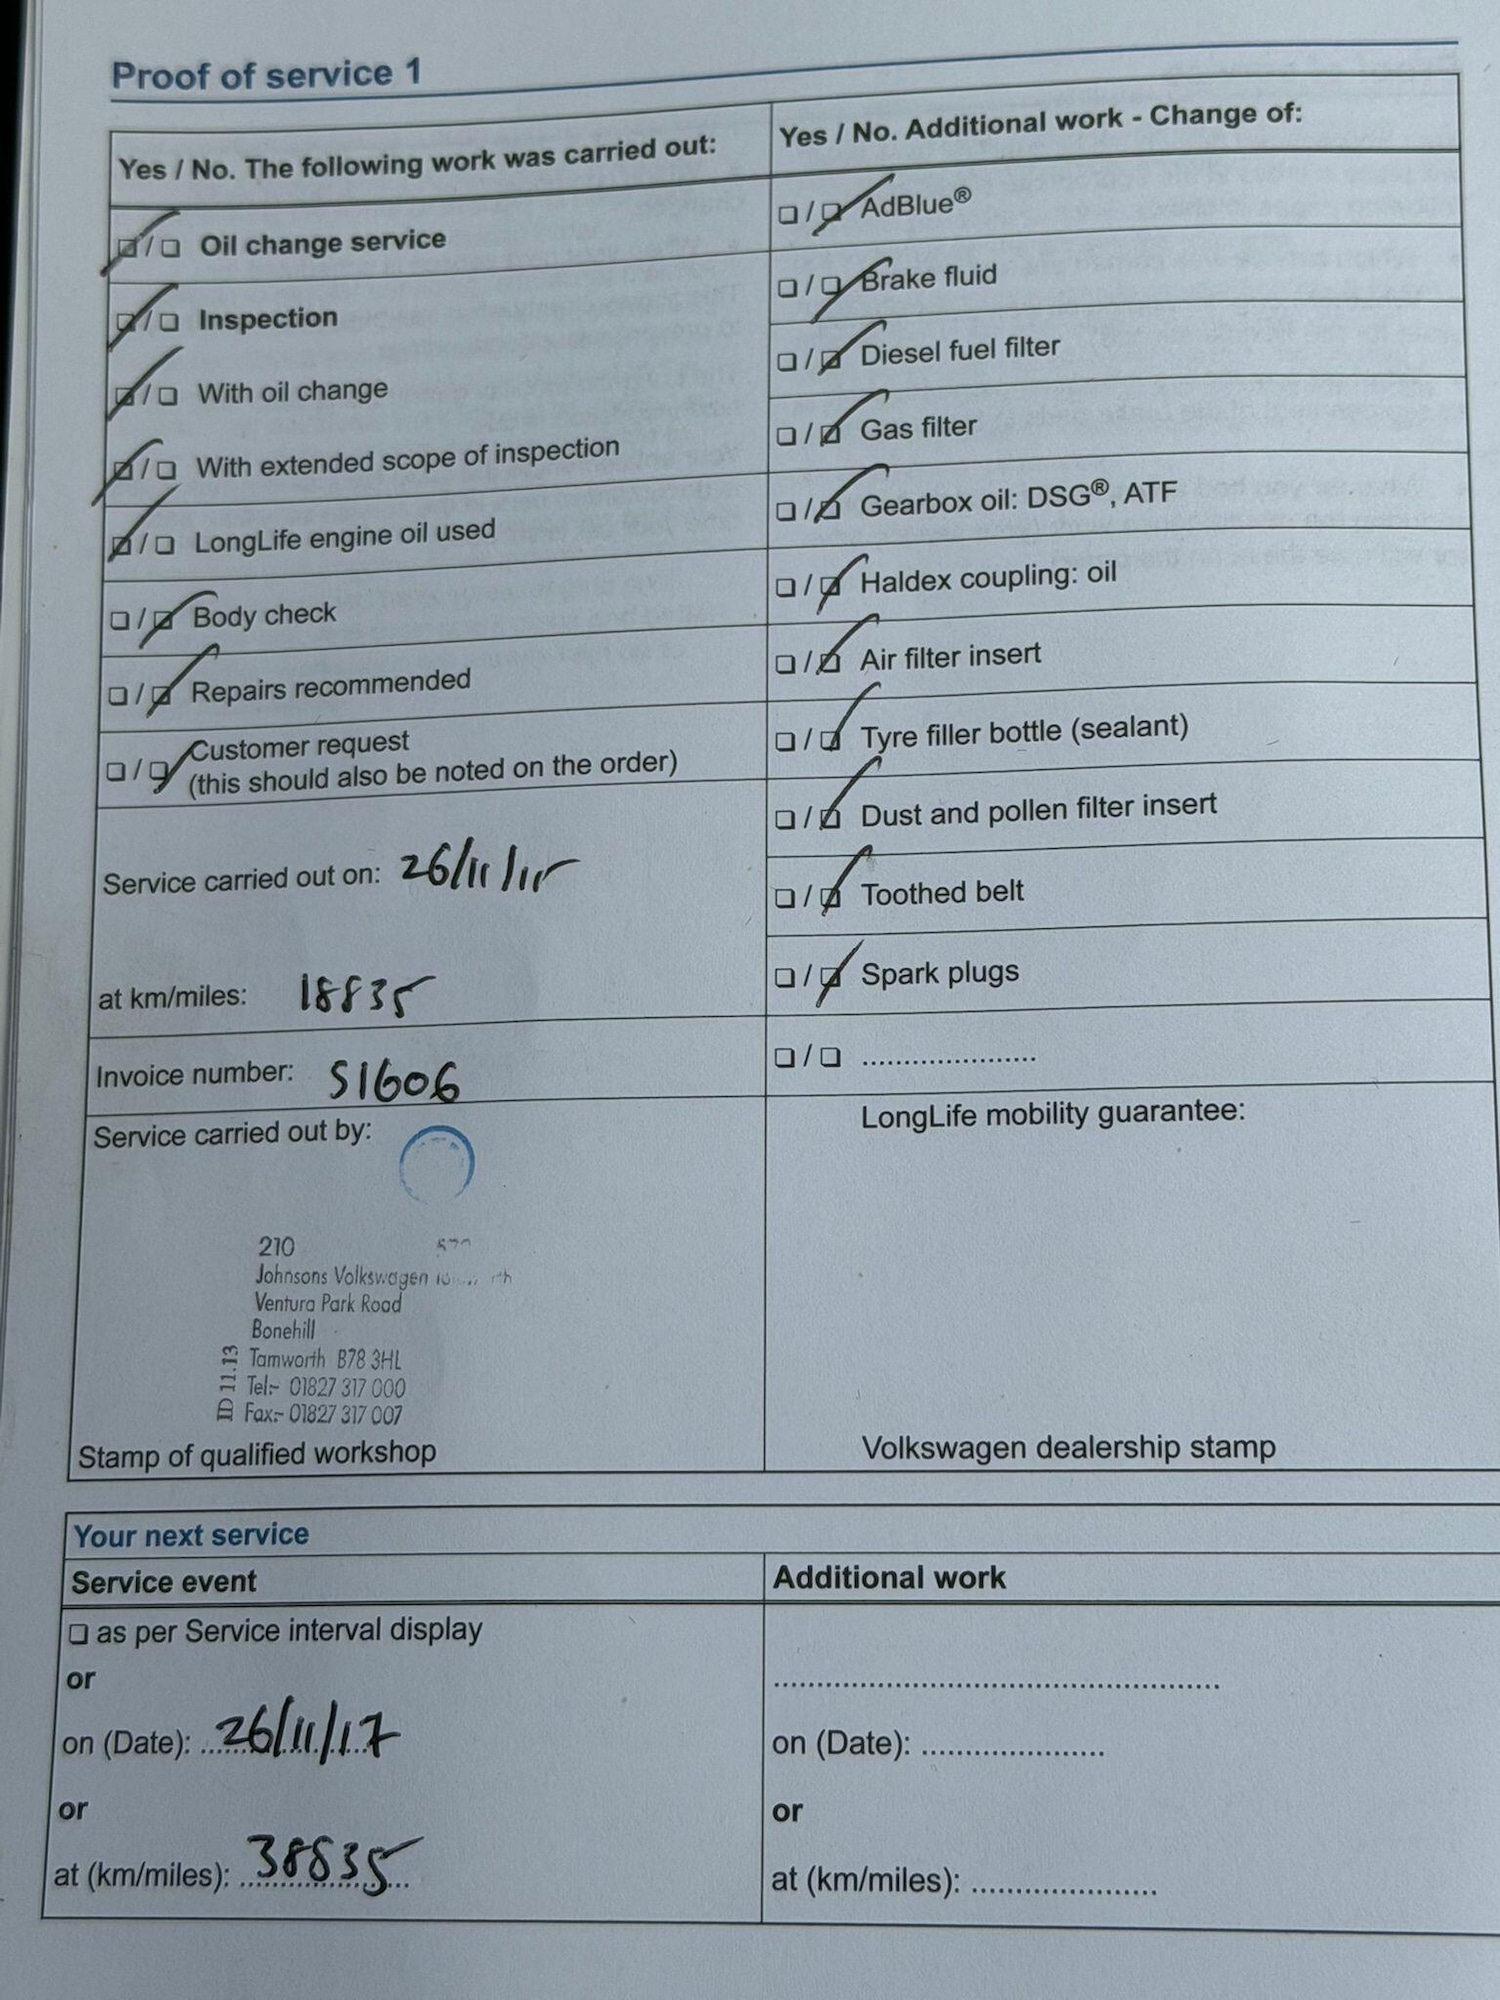 Proof of service 1
Yes / No. The following work was carried out:
☑/☐ Oil change service
☑/☐ Inspection
☑/☐ With oil change
☑/☐ With extended scope of inspection
☑/☐ LongLife engine oil used
☐/☑ Body check
☐/☑ Repairs recommended
☐/☑ Customer request
(this should also be noted on the order)
Service carried out on: 26/11/15
at km/miles: 18835
Invoice number: S1606
Service carried out by:
210
Johnsons Volkswagen
Ventura Park Road
Bonehill
Tamworth B78 3HL
Tel:- 01827 317 000
Fax:- 01827 317 007
ID 11.13
Stamp of qualified workshop
Yes / No. Additional work - Change of:
☐/☑ AdBlue®
☐/☑ Brake fluid
☐/☑ Diesel fuel filter
☐/☑ Gas filter
☐/☑ Gearbox oil: DSG®, ATF
☐/☑ Haldex coupling: oil
☐/☑ Air filter insert
☐/☑ Tyre filler bottle (sealant)
☐/☑ Dust and pollen filter insert
☐/☑ Toothed belt
☐/☑ Spark plugs
☐/☐ .....................
LongLife mobility guarantee:
Volkswagen dealership stamp
Your next service
Service event
☐ as per Service interval display
or
on (Date): 26/11/17
or
at (km/miles): 38835
Additional work
.....................
on (Date): .....................
or
at (km/miles): .....................